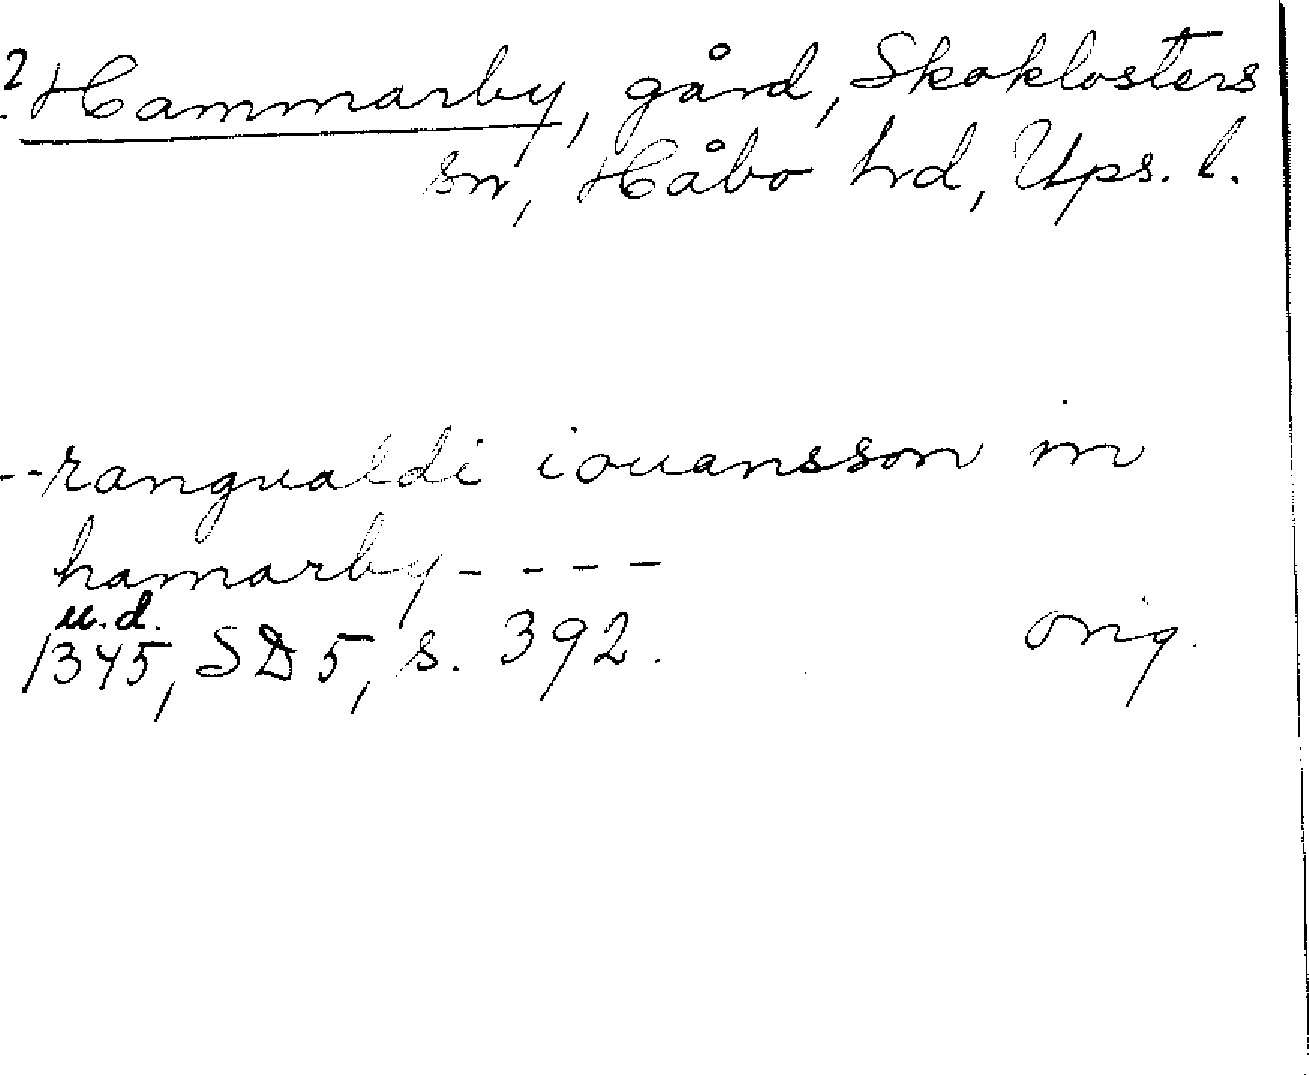 ? Hammarby, gård, Skoklosters
sn, Håbo hd, Ups. l.
--rangualdi iouansson in
hamarby----
u.d.
1345, SD 5, s. 392. orig.